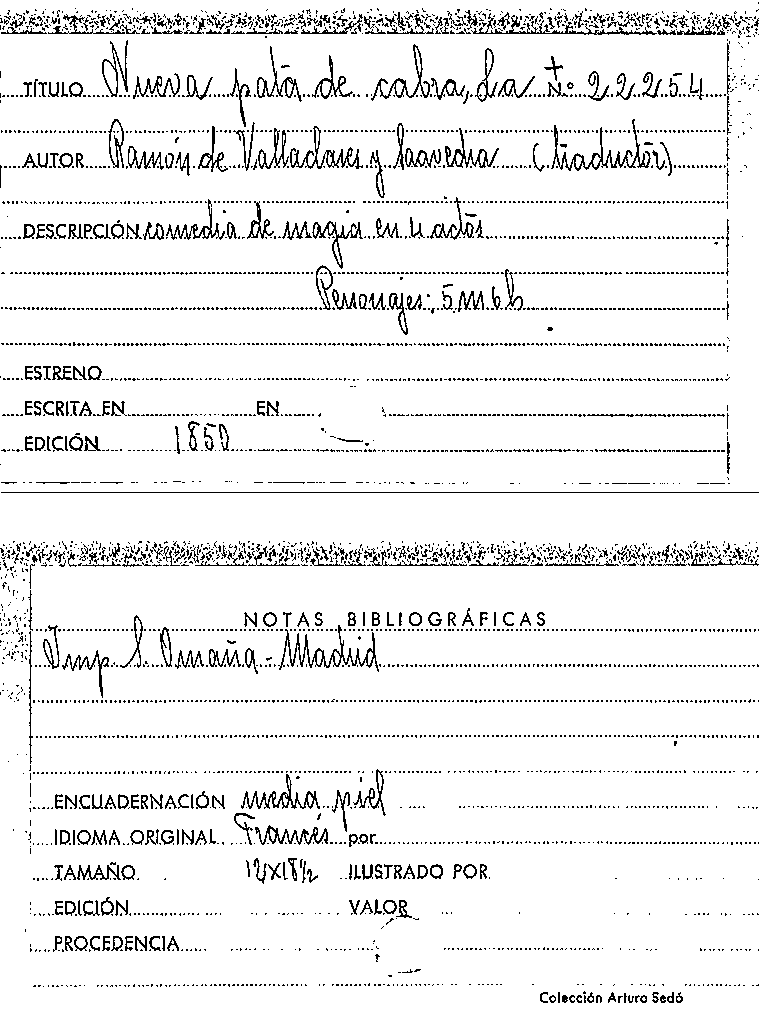 TÍTULO Nueva pata de cabra, La Nº 22254
AUTOR Ramón de Valladares y Saavedra (traductor)
DESCRIPCIÓN comedia de magia en 4 actos
Personajes: 5 m 6 h
ESTRENO
ESCRITA EN EN
EDICIÓN 1850
NOTAS BIBLIOGRÁFICAS
Imp. S. Omaña - Madrid
ENCUADERNACIÓN media piel
IDIOMA ORIGINAL Francés por
TAMAÑO 12x18½ ILUSTRADO POR
EDICIÓN VALOR
PROCEDENCIA
Colección Arturo Sedó